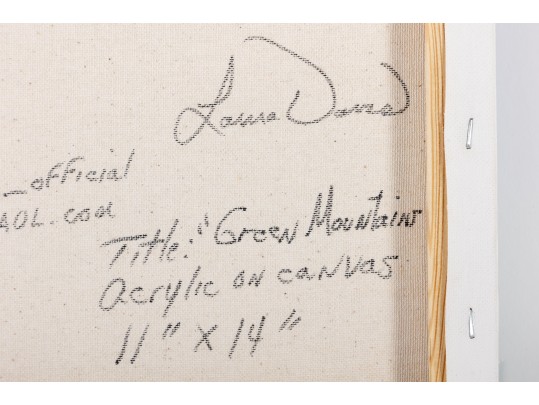 _official
AOL.com
Title: "Green Mountains
Acrylic on canvas
11" x 14"